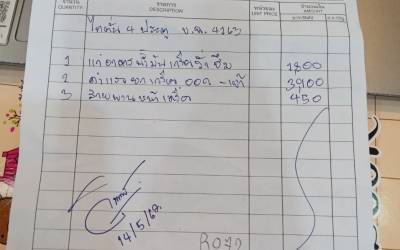 จำนวน รายการ หน่วยละ จำนวนเงิน
QUANTITY DESCRIPTION UNIT PRICE AMOUNT
ไทตัน 4 ประตู บ.ล. 4263
1 แก่อาการน้ำมันเกียร์รั่วซึม 1800
2 ค่าแรงยกเกียร์ ออก - เข้า 3900
3 สายพานหน้าเครื่อง 450
14/5/62